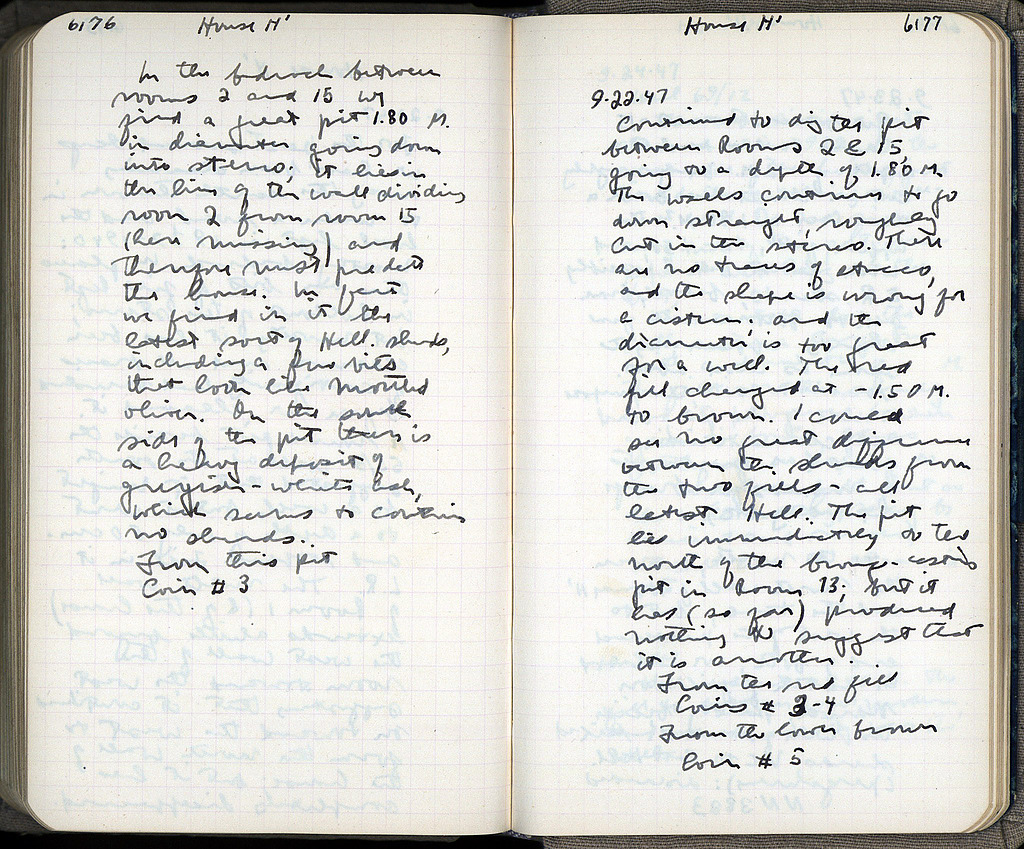 6176 House H'
In the bedrock between
rooms 2 and 15 we
find a great pit 1.80 M.
in diameter going down
into stereo; it lies in
the line of the wall dividing
room 2 from room 15
(here missing) and
therefore must predate
the house. In fact
we find in it the
latest sort of Hell. sherds,
including a few bits
that look like moulded
On the south
side of the pit there is
a heavy deposit of
greyish-white ash,
which seems to contain
no sherds.
From this pit
Coin # 3
House H' 6177
9.22.47
Continued to dig the pit
between Rooms 2 & 15,
going to a depth of 1.80 M.
The walls continue to go
down straight, roughly
cut in the stereo. There
are no traces of stucco,
and the shape is wrong for
a cistern, and the
diameter is too great
for a well. The red
fill changed at -1.50 M.
to brown. I could
see no great difference
between the sherds from
the two fills - all
latest Hell. The pit
lies immediately to the
north of the bronze-casting
pit in Room 13, but it
has (so far) produced
nothing to suggest that
it is another.
From the red fill
Coins # 3-4
From the lower brown
Coin # 5